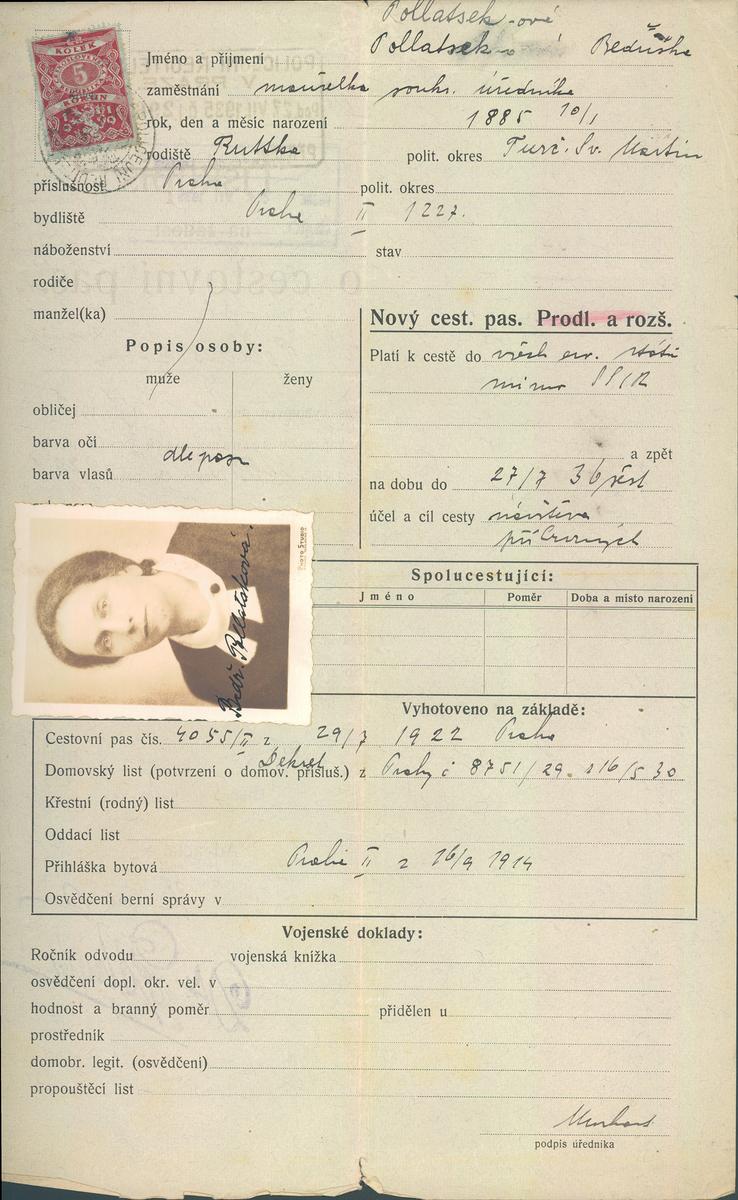 Pollatsek-ové
Jméno a příjmení Pollatsek Bedřiška
KOLEK
5
KORUN
zaměstnání manželka soukr. úředníka
rok, den a měsíc narození 1885 10/1
rodiště Ruttka polit. okres Turč. Sv. Martin
příslušnost Praha polit. okres
bydliště Praha II 1227.
náboženství stav
rodiče
manžel(ka)
Popis osoby:
muže ženy
obličej
barva očí
barva vlasů dle pasu
Nový cest. pas. Prodl. a rozš.
Platí k cestě do všech evr. států
mimo SSSR
a zpět
na dobu do 27/7 36
účel a cíl cesty návštěva
příbuzných
PHOTO STUDIO
Bedř. Pollatsková.
Spolucestující:
Jméno Poměr Doba a místo narození
Vyhotoveno na základě:
Cestovní pas čís. 4055/II z 29/7 1922 Praha
Dekret
Domovský list (potvrzení o domov. přísluš.) z Prahy č 8751/29. z 16/5 30
Křestní (rodný) list
Oddací list
Přihláška bytová Praha II z 16/9 1914
Osvědčení berní správy v
Vojenské doklady:
Ročník odvodu vojenská knížka
osvědčení dopl. okr. vel. v
hodnost a branný poměr přidělen u
prostředník
domobr. legit. (osvědčení)
propouštěcí list
podpis úředníka